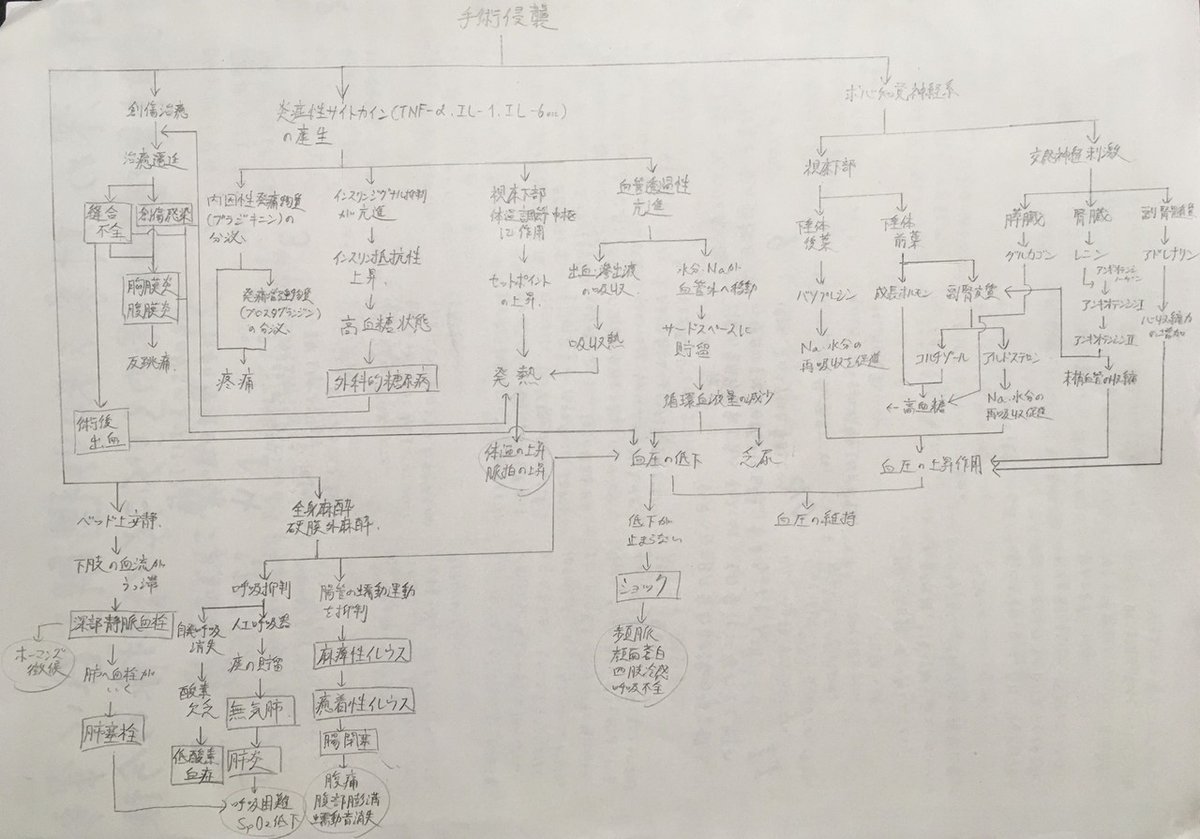 手術侵襲
創傷治癒
治癒遅延
縫合
不全
創傷感染
胸膜炎
腹膜炎
反跳痛
術後
出血
炎症性サイトカイン(TNF-α、IL-1、IL-6 etc)
の産生
内因性発痛物質
(ブラジキニン)の
分泌
発痛増強物質
(プロスタグランジン)
の分泌
疼痛
インスリンシグナル抑制
が亢進
インスリン抵抗性
上昇
高血糖状態
外科的糖尿病
視床下部
体温調節中枢
に作用
セットポイント
の上昇
発熱
体温の上昇
脈拍の上昇
血管透過性
亢進
出血・滲出液
の吸収
吸収熱
水分・Naが
血管外へ移動
サードスペースに
貯留
循環血液量の減少
血圧の低下
乏尿
低下が
止まらない
ショック
頻脈
顔面蒼白
四肢冷感
呼吸不全
血圧の維持
神経系
視床下部
下垂体
後葉
バソプレシン
Na・水分の
再吸収を促進
下垂体
前葉
成長ホルモン
副腎皮質
コルチゾール
アルドステロン
←高血糖
Na・水分の
再吸収促進
血圧の上昇作用
交感神経刺激
膵臓
グルカゴン
腎臓
レニン
アンギオテンシノーゲン
アンギオテンシンⅠ
アンギオテンシンⅡ
末梢血管の収縮
副腎髄質
アドレナリン
心収縮力
の増加
ベッド上安静
下肢の血流が
うっ滞
深部静脈血栓
ホーマンズ
徴候
肺へ血栓が
いく
肺塞栓
全身麻酔
硬膜外麻酔
呼吸抑制
自発呼吸
消失
酸素
欠乏
低酸素
血症
人工呼吸器
痰の貯留
無気肺
肺炎
呼吸困難
SpO2低下
腸管の蠕動運動
を抑制
麻痺性イレウス
癒着性イレウス
腸閉塞
腹痛
腹部膨満
蠕動音消失